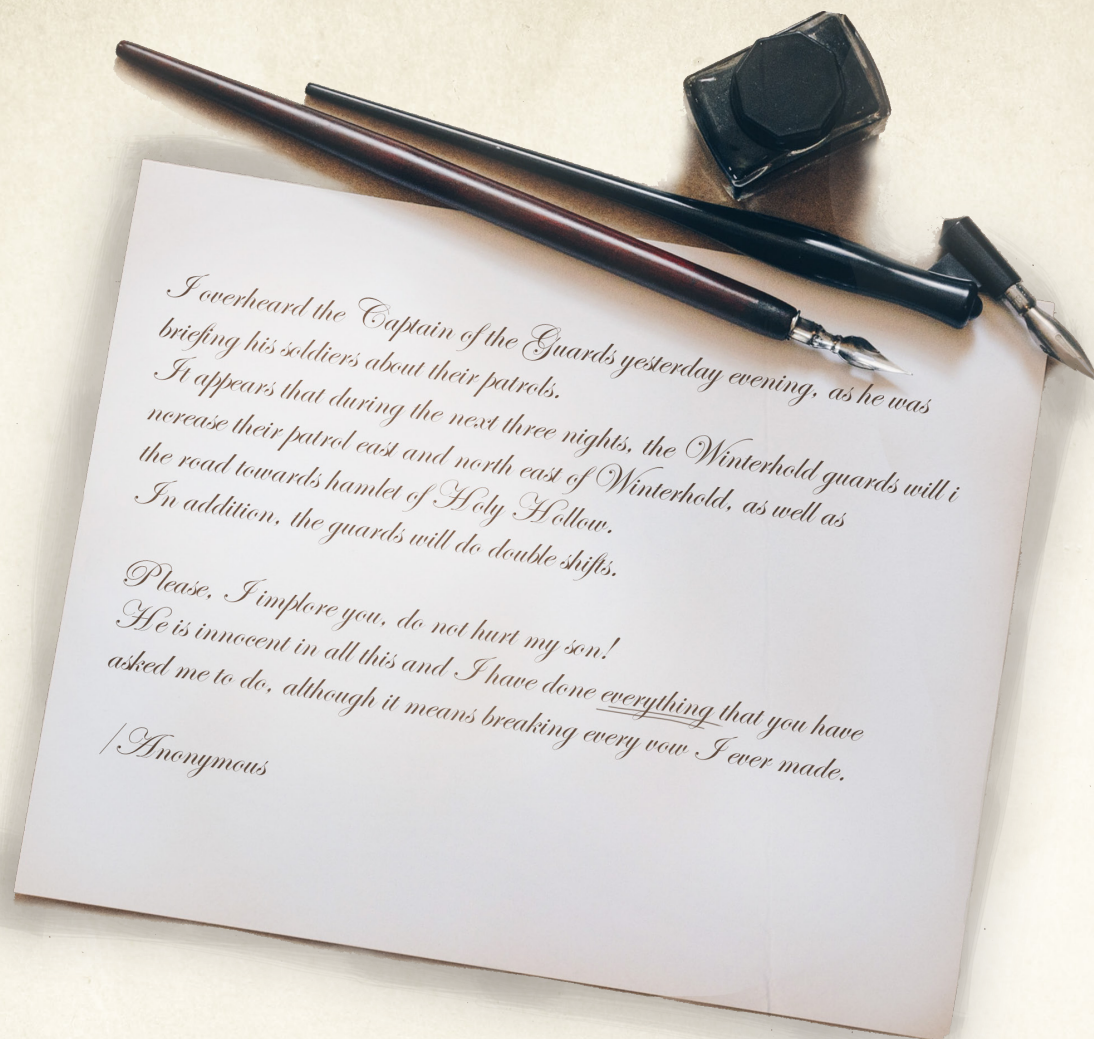 I overheard the Captain of the Guards yesterday evening, as he was
briefing his soldiers about their patrols.
It appears that during the next three nights, the Winterhold guards will i
ncrease their patrol east and north east of Winterhold, as well as
the road towards hamlet of Holy Hollow.
In addition, the guards will do double shifts.
Please, I implore you, do not hurt my son!
He is innocent in all this and I have done everything that you have
asked me to do, although it means breaking every vow I ever made.
/Anonymous